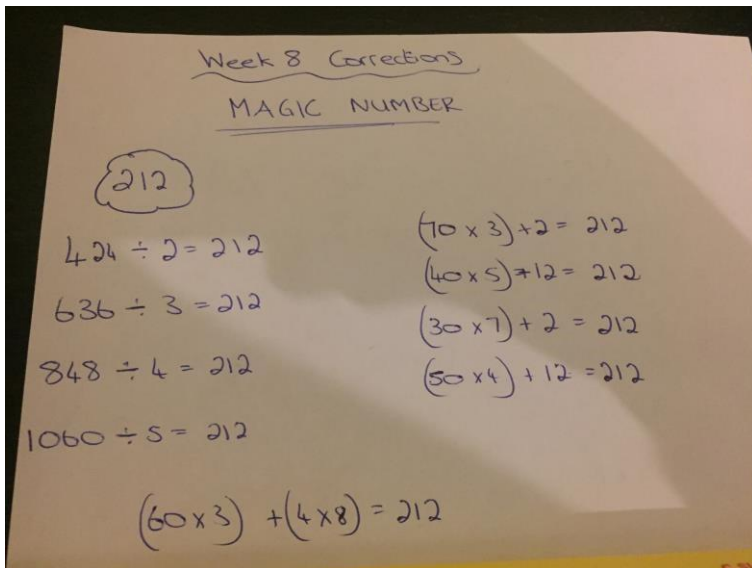 Week 8 Corrections
MAGIC NUMBER
212
424 ÷ 2 = 212
636 ÷ 3 = 212
848 ÷ 4 = 212
1060 ÷ 5 = 212
(70 x 3) + 2 = 212
(40 x 5) + 12 = 212
(30 x 7) + 2 = 212
(50 x 4) + 12 = 212
(60 x 3) + (4 x 8) = 212